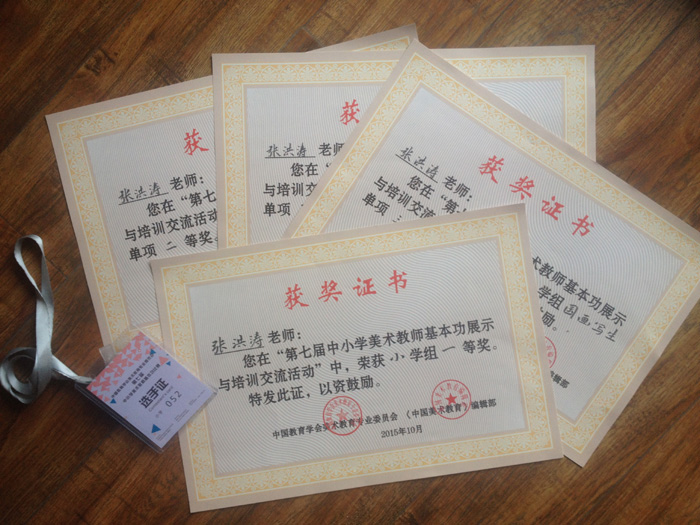 获奖证书
张洪涛 老师：
您在“第七届中小学美术教师基本功展示
与培训交流活动”中，荣获 小学组 一 等奖。
特发此证，以资鼓励。
中国教育学会美术教育专业委员会 《中国美术教育》编辑部
2015年10月
获
张洪涛 老师：
您在“第七
与培训交流活动
单项 二 等奖。
获
张洪涛 老师：
您在“第
与培训交
单项
获奖证书
张洪涛 老师：
您在“第七
与培训交流活
单项
术教师基本功展示
学组国画写生
励。
编辑部
选手证
052